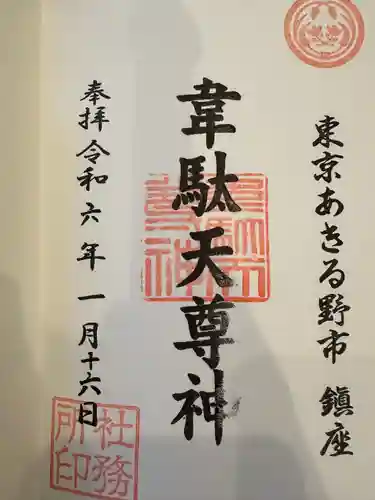 東京あきる野市 鎮座
韋駄天尊神
奉拝 令和六年 一月十六日
社務所印